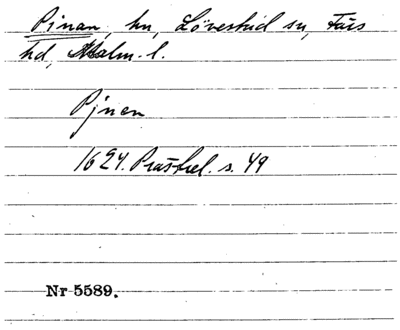 Pinan, hn, Lövestad sn, Färs
hd, Malm. l.
Pjnan
1624. Prästrel. s. 49
Nr 5589.